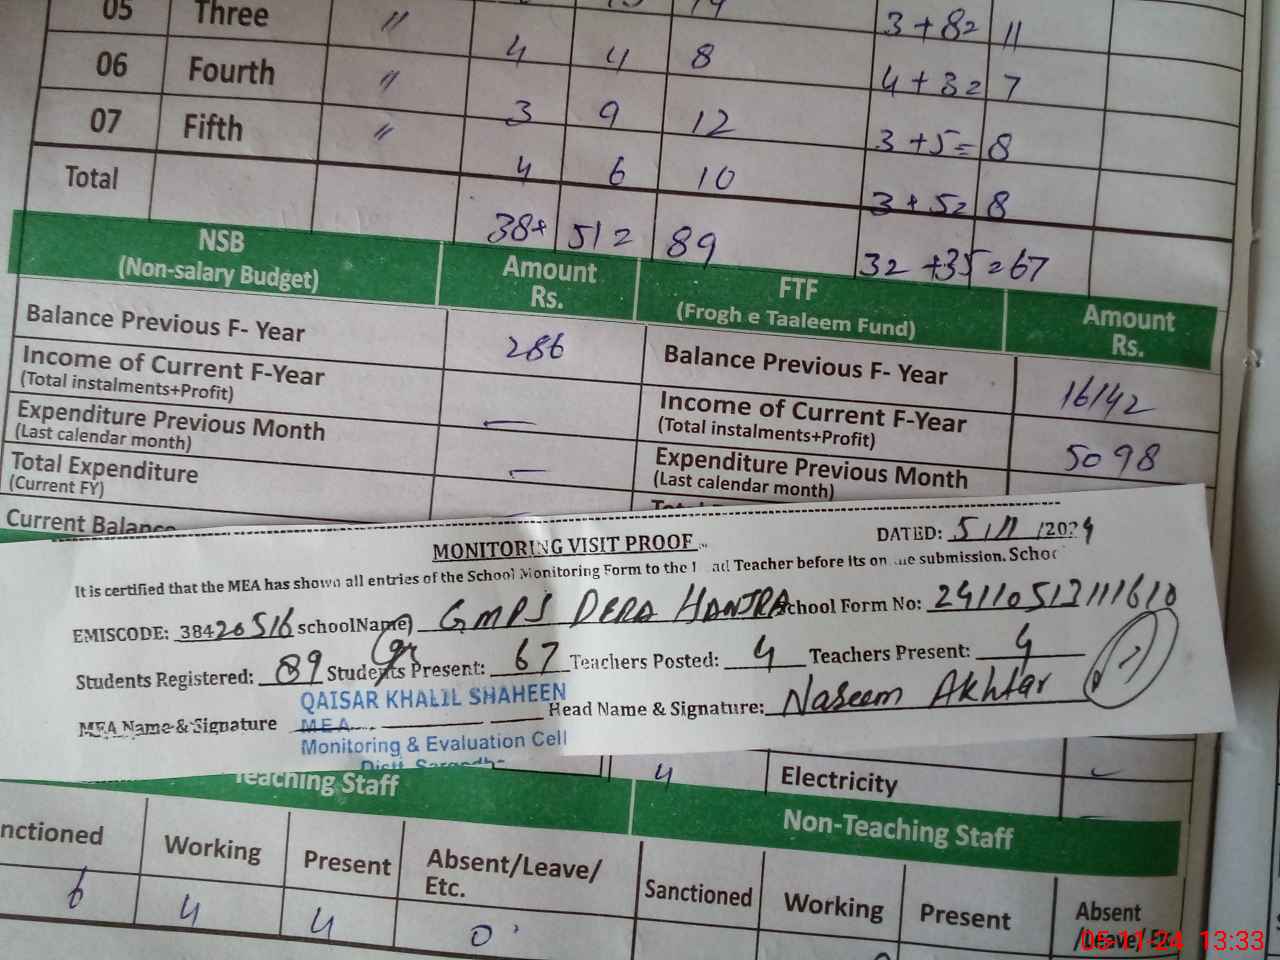 05 Three 〃 19 3 + 8 = 11
06 Fourth 〃 4 4 8 4 + 3 = 7
07 Fifth 〃 3 9 12 3 + 5 = 8
Total 4 6 10 3 + 5 = 8
38 + 51 = 89 32 + 35 = 67
NSB (Non-salary Budget) Amount Rs. FTF (Frogh e Taaleem Fund) Amount Rs.
Balance Previous F- Year 286 Balance Previous F- Year 16142
Income of Current F-Year (Total instalments+Profit) — Income of Current F-Year (Total instalments+Profit) 5098
Expenditure Previous Month (Last calendar month) — Expenditure Previous Month (Last calendar month)
Total Expenditure (Current FY)
Current Balance
MONITORING VISIT PROOF DATED: 5/11/2024
It is certified that the MEA has shown all entries of the School Monitoring Form to the Teacher before its submission.
EMISCODE: 38420516 schoolName GMPS DERA HANJRA School Form No:
Students Registered: 89 Students Present: 67 Teachers Posted: 4 Teachers Present: 4
MEA Name & Signature QAISAR KHALIL SHAHEEN Head Name & Signature: Naseem Akhtar
MEA
Monitoring & Evaluation Cell
4 Electricity
Teaching Staff Non-Teaching Staff
Working Present Absent/Leave/ Etc. Sanctioned Working Present Absent /Leave/ Etc
6 4 4 0
05-11-24 13:33